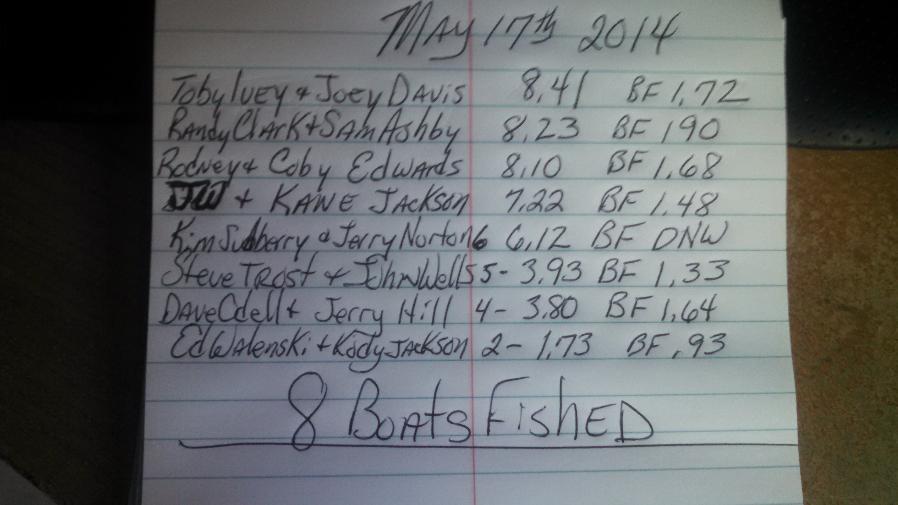 MAY 17th 2014
Toby Ivey & Joey DAVIS 8,41 BF 1,72
RANdy ClARK + SAM Ashby 8,23 BF 190
Rodney + Coby EdwARds 8,10 BF 1,68
JW + KANE JACKSON 7,22 BF 1.48
Kim Sudberry & Jerry Norton 6 6,12 BF DNW
Steve TROST & JOhN Wells 5 - 3,93 BF 1,33
DAve Odell + Jerry Hill 4 - 3,80 BF 1,64
Ed WAlenski + Kody JACKSON 2 - 1,73 BF ,93
8 BOAtS FishED